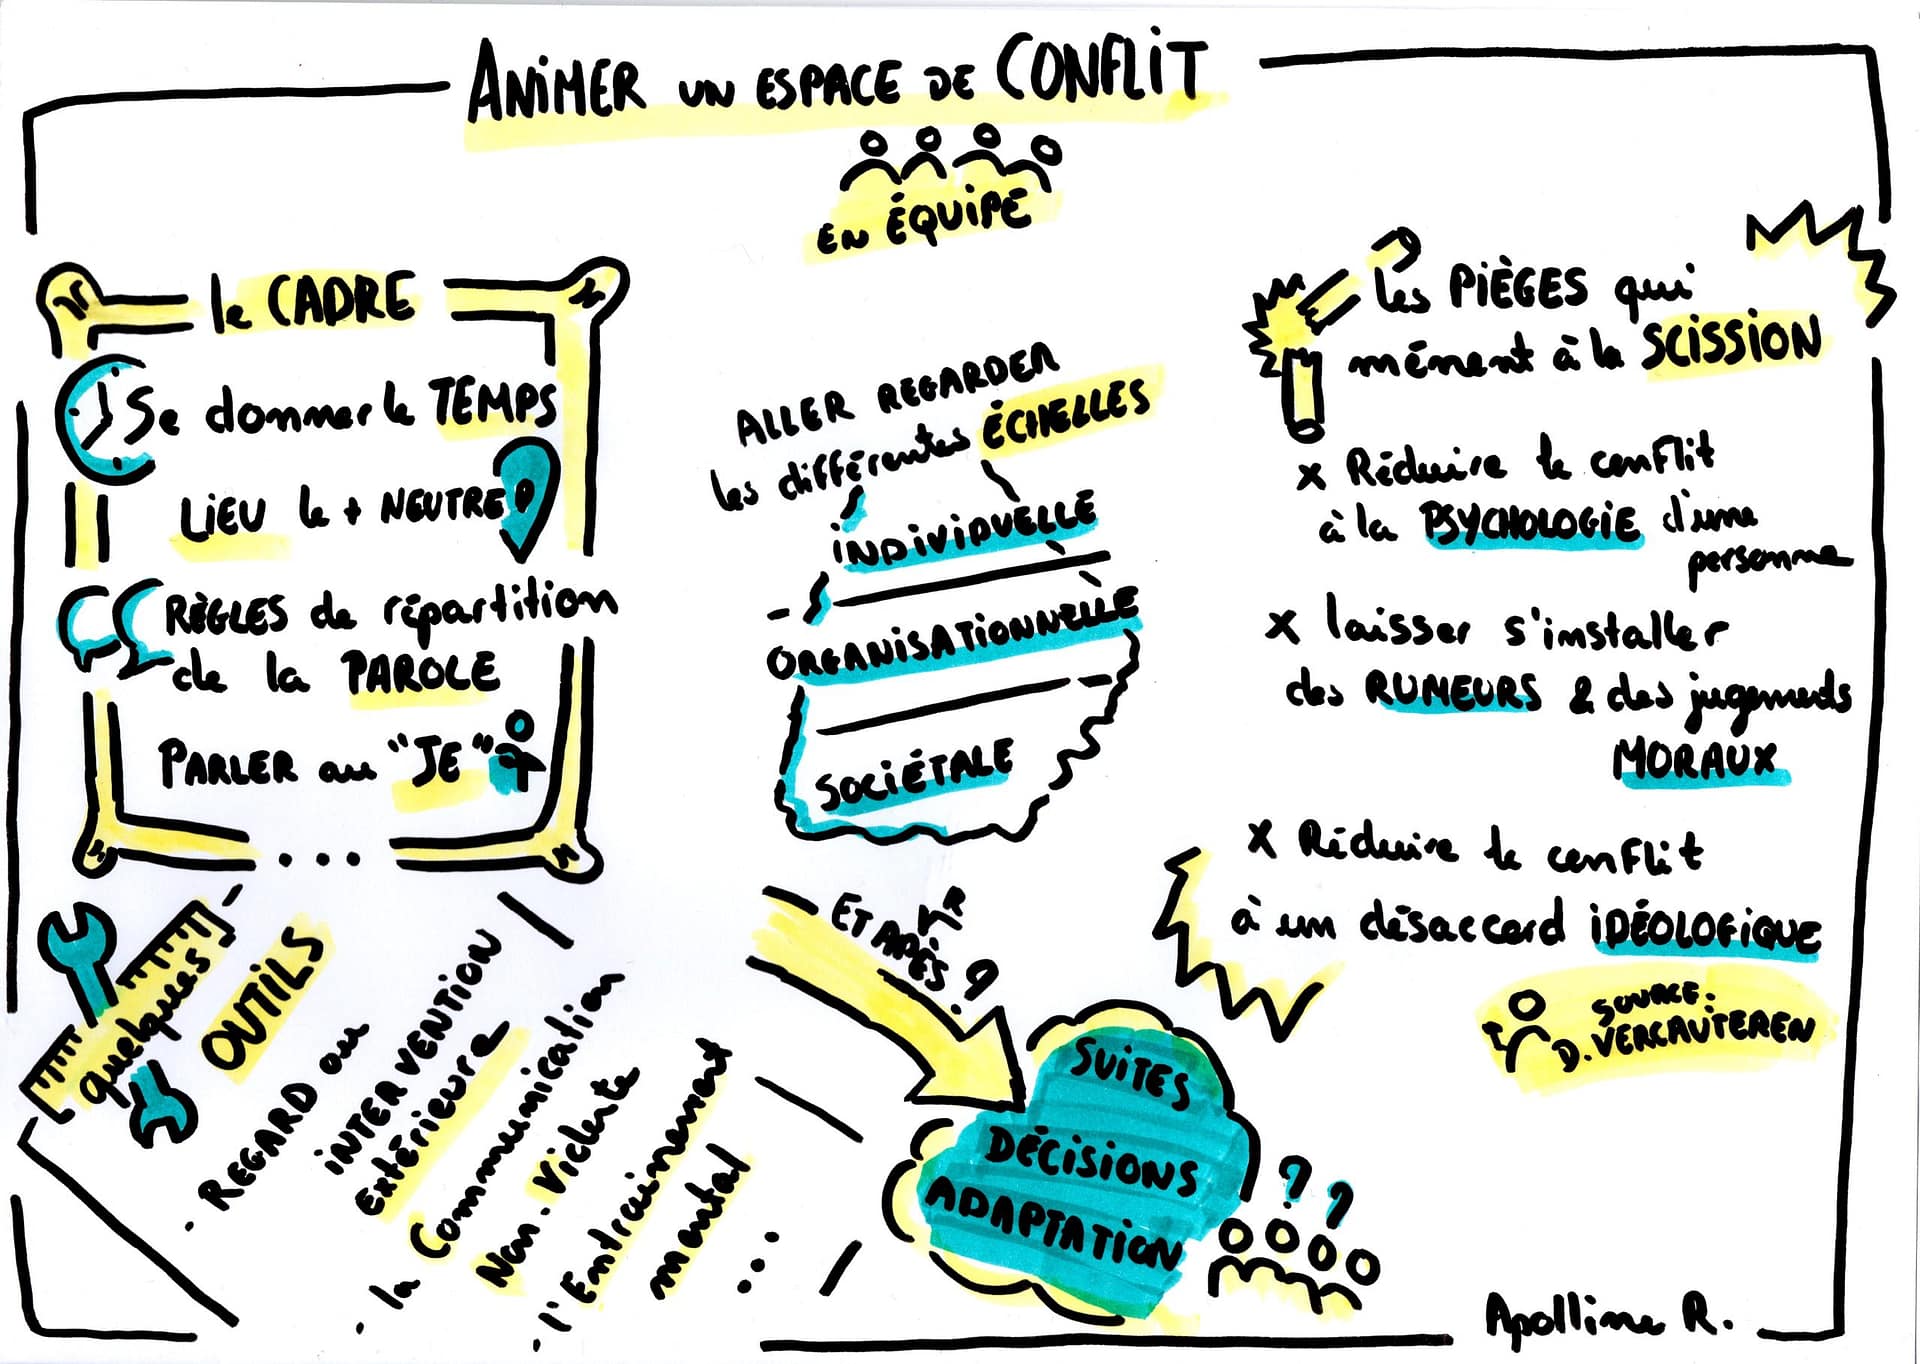 ANIMER UN ESPACE DE CONFLIT
EN ÉQUIPE
le CADRE
Se donner le TEMPS
LIEU le + NEUTRE
RÈGLES de répartition
de la PAROLE
PARLER au "JE"
...
ALLER REGARDER
les différentes ÉCHELLES
INDIVIDUELLE
ORGANISATIONNELLE
SOCIÉTALE
les PIÈGES qui
mènent à la SCISSION
x Réduire le conflit
à la PSYCHOLOGIE d'une
personne
x laisser s'installer
des RUMEURS & des jugements
MORAUX
x Réduire le conflit
à un désaccord IDÉOLOGIQUE
SOURCE:
D. VERCAUTEREN
quelques
OUTILS
· REGARD ou
INTERVENTION
extérieure
· la Communication
Non-Violente
· l'Entrainement
mental
...
ET APRÈS ?
SUITES
DÉCISIONS
ADAPTATION
? ?
Apolline R.